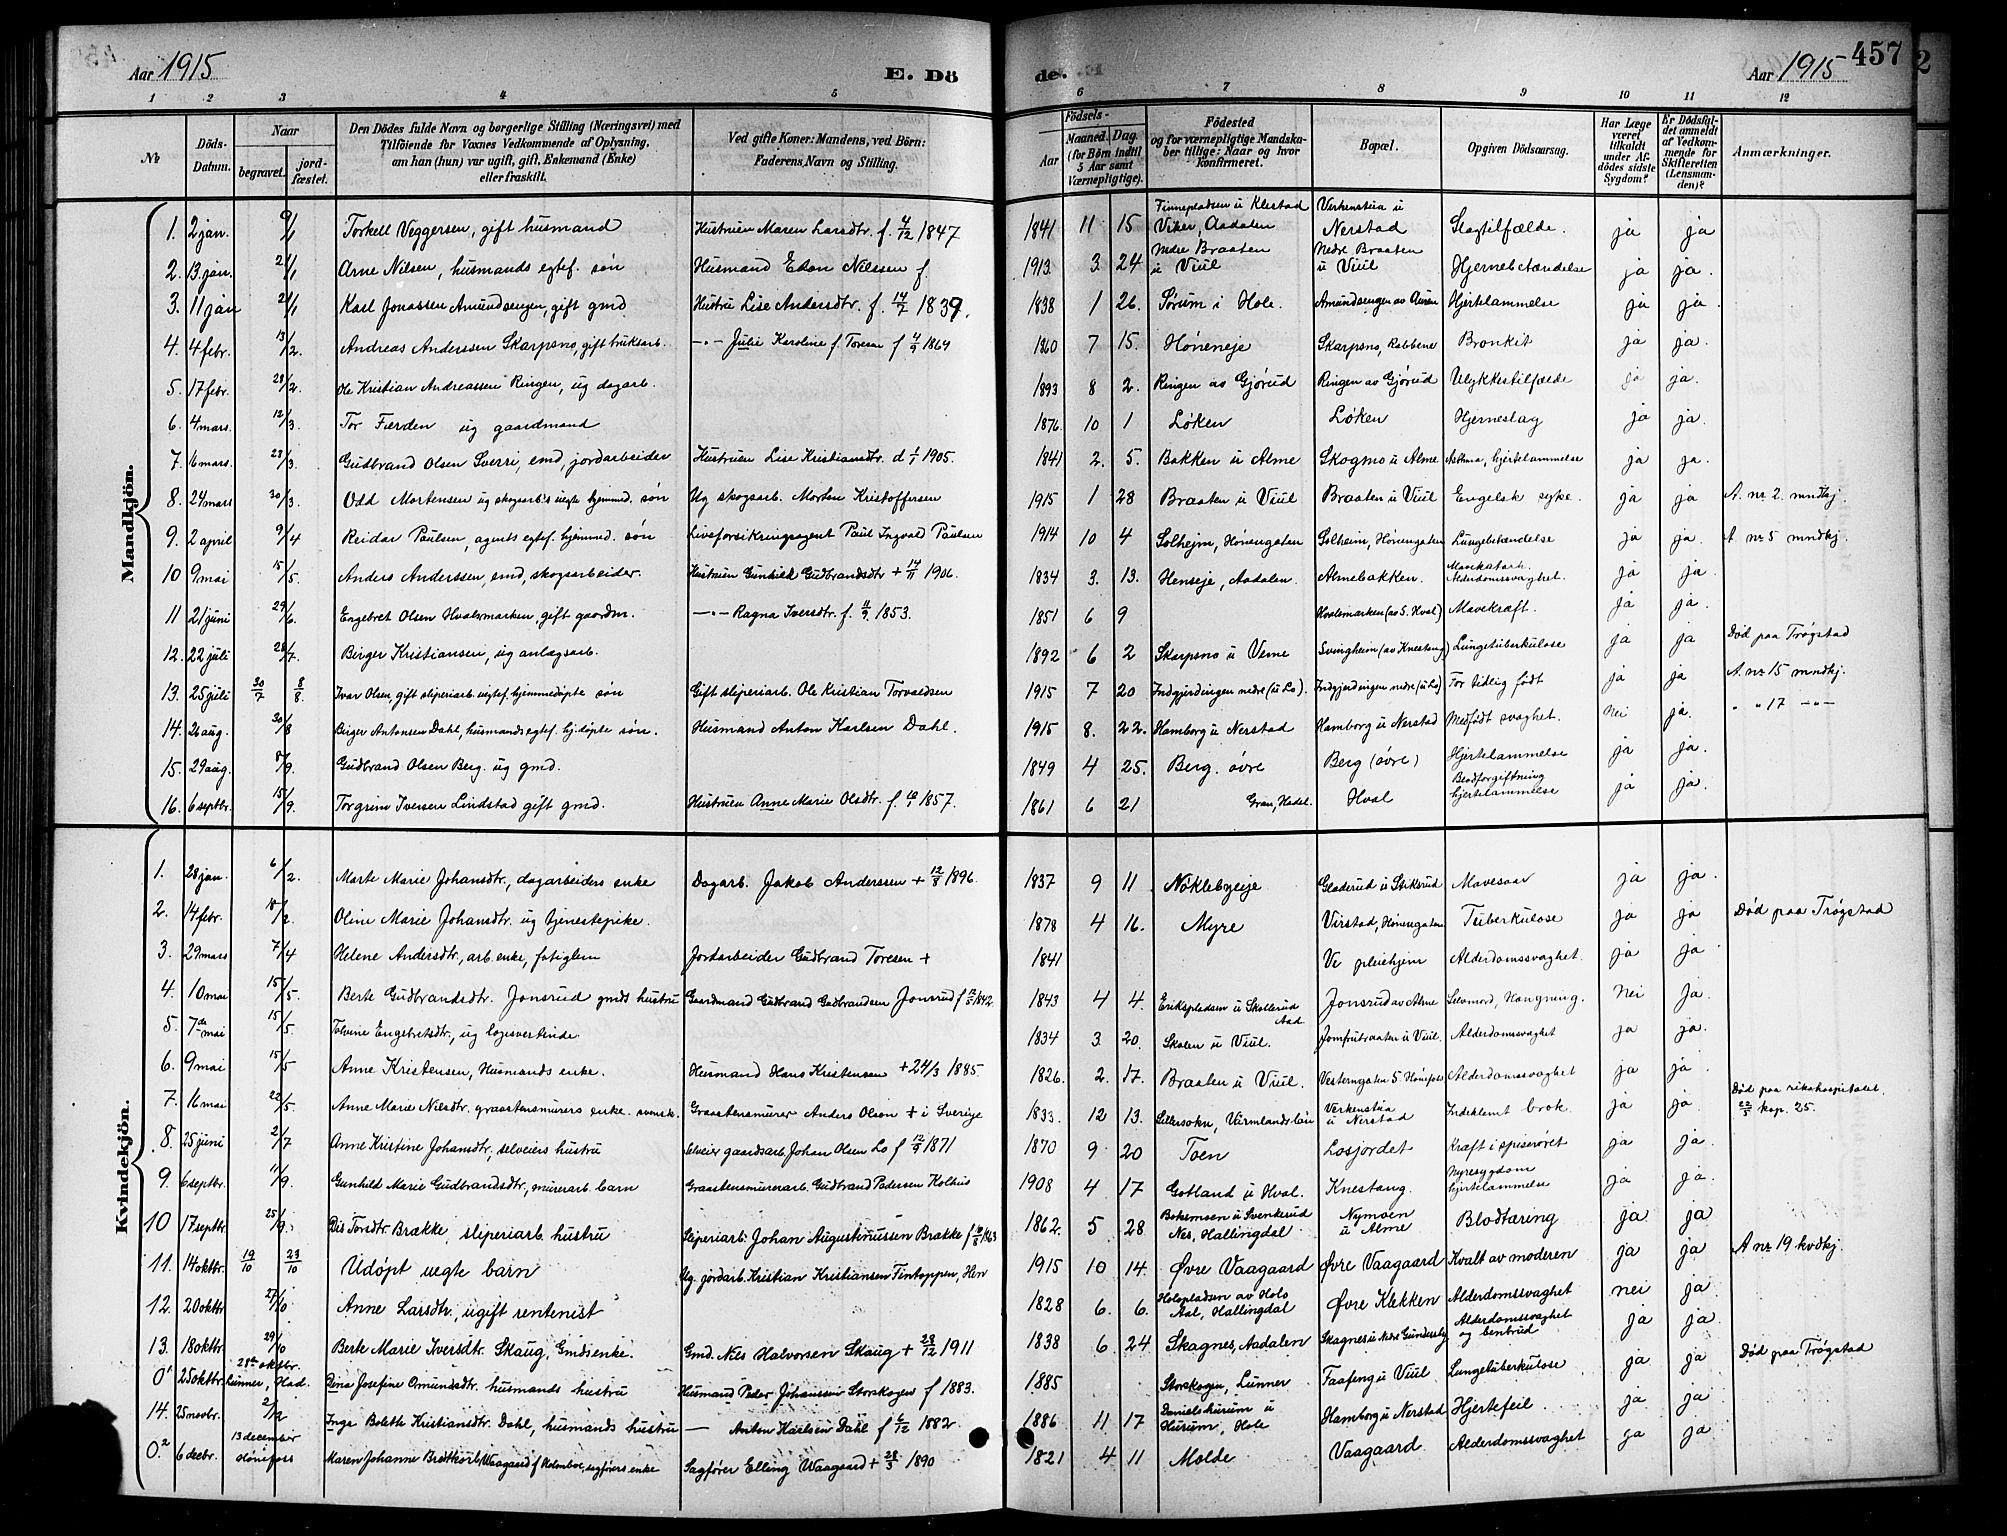 Aar 1915
E. Dö
de.
457
Aar 1915
2
1 2 3 4 5 6 7 8 9 10 11 12
No
Döds-Datum.
Naar
begravet.
jordfæstet.
Den Dödes fulde Navn og borgerlige Stilling (Næringsvei) med Tilföiende for Voxnes Vedkommende af Oplysning, om han (hun) var ugift, gift, Enkemand (Enke) eller fraskilt.
Ved gifte Koner: Mandens, ved Börn: Faderens, Navn og Stilling.
Födsels-
Aar
Maaned. Dag.
(for Börn indtil 5 Aar samt Værnepligtige).
Födested og for værnepligtige Mandskaber tillige: Naar og hvor konfirmeret.
Bopæl.
Opgiven Dödsaarsag.
Har Læge været tilkaldt under Afdödes sidste Sygdom?
Er Dödsfaldet anmeldt af Vedkommende for Skifteretten (Lensmanden)?
Anmærkninger.
Mandkjön.
1. 2 jan. 9/1 Torkell Veggersen, gift husmand Hustruen Maren Larsdtr. f. 4/12 1847 1841 11 15 Finnepladsen u Klestad Viker, Aadalen Verkenstua u Nerstad Slagtilfælde. ja ja
2. 13. jan. 21/1 Arne Nilsen, husmands egtef. søn Husmand Edon Nilssen f. 1913 3. 24 Nedre Braaten u Viul Nedre Braaten u Viul Hjernebetændelse ja ja.
3. 11 jan 21/1 Karl Jonassen Amundsengen, gift gmd Hustru Lise Andersdtr. f. 14/2 1839. 1838 1 26. Sørum i Hole. Amundsengen av Auren Hjertelammelse ja ja.
4. 4 febr. 13/2. Andreas Anderssen Skarpsno, gift bruksarb. —"— Julie Karoline f. Toresen f 4/9 1864 1860 7 15. Høneneje Skarpsno, Rabbene Bronkit ja ja.
5. 17 febr. 28/2. Ole Kristian Andreassen Ringen, ug dagarb. 1893 8 2. Ringen av Gjørud Ringen av Gjørud Ulykkestilfælde ja ja.
6. 4 mars. 12/3. Tor Fierden ug gaardmand 1876. 10 1 Løken Løken Hjerneslag ja ja.
7. 16 mars. 23/3. Gudbrand Olsen Sverri, emd, jordarbeider Hustruen Lise Kristiansdtr. d 1/1 1905. 1841 2. 5. Bakken u Alme Skogmo u Alme Asthma, hjertelammelse ja ja.
8. 24 mars 30/3. Odd Mortensen ug skogarb.s uegte hjemmed. søn Ug skogsarb. Morten Kristoffersen 1915 1 28 Braaten u Viul Braaten u Viul Engelsk syke. ja ja A. nr 2. mndkj.
9. 2 april 9/4 Reidar Paulsen, agents egtef. hjemmed. søn Livsforsikringsagent Paul Ingvald Paulsen 1914 10 4 Solhejm, Hønengaten Solheim, Hønengaten Lungebetændelse ja ja. A nr 5 mndkj.
10 9 mai 15/5. Anders Anderssen, emd, skogsarbeider. Hustruen Gunhild Gudbrandsdtr + 14/11 1906. 1834 3. 13. Henseje, Aadalen. Almebakken. Mavekatarh. Alderdomssvaghet. ja ja.
11 21 juni 29/6. Engebret Olsen Hvalsmarken, gift gaardm. —"— Ragna Iversdtr. f. 11/9. 1853. 1851 6 9 Hvalsmarken (av S. Hval) Mavekræft. ja ja.
12. 22 juli 28/7. Birger Kristiansen, ug anlægsarb. 1892 6 2 Skarpsno u Veme Svingheim (av Knestang) Lungetuberkulose ja ja Død paa Trøgstad
13. 25 juli 30/7 8/8. Ivar Olsen, gift sliperiarb. uegtef. hjemmedøpte søn Gift sliperiarb. Ole Kristian Torvaldsen 1915 7 20 Indgjerdingen nedre (u Lo). Indgjerdingen nedre (u Lo) For tidlig født ja ja A. nr 15 mndkj.
14. 26 aug. 30/8 Birger Antonsen Dahl, husmands egtef. hj.døpte søn. Husmand Anton Karlsen Dahl. 1915 8. 22. Hamborg u Nerstad Hamborg u Nerstad Medfødt svaghet. nei ja. " " 17 —"—
15. 29 aug. 8/9. Gudbrand Olsen Berg. ug gmd. 1849 4 25. Berg. øvre Berg (øvre) Hjertelammelse ja ja.
16. 6 septbr. 15/9. Torgrim Iversen Lindstad gift gmd. Hustruen Anne Marie Olsdtr. f. 1857. 1861 6 21 Gran, Hadel. Hval Blodforgiftning hjertelammelse ja ja.
Kvindekjön.
1. 28 jan. 6/2. Marte Marie Johansdtr., dagarbeiders enke Dagarb. Jakob Anderssen + 12/8 1896. 1837 9 11 Nøklebyeje Gladerud u Stikerud Mavesaar ja ja.
2. 14 febr. 18/2. Oline Marie Johansdtr. ug tjenestepike. 1878 4 16. Myre Virstad, Hønengaten Tuberkulose ja ja Død paa Trøgstad
3. 29 mars 7/4 Helene Andersdtr., arb. enke, fatiglem Jordarbeider Gudbrand Toresen + 1841 Ve pleiehjem Alderdomssvaghet. ja ja
4. 10 mai 15/5. Berte Gudbrandsdtr. Jonsrud gmds hustru Gaardmand Gudbrand Gudbrandsen Jonsrud f 12/5 1842 1843 4 4. Erikspladsen u Skollerud Aad Jonsrud av Alme Selvmord, Hængning. nei Ja.
5. 7de mai 15/5. Tolvine Engebretsdtr., ug logsvertinde 1834 3 20. Skolen u Viul. Jomfrubraaten u Viul. Alderdomssvaghet ja ja.
6. 9 mai 15/5 Anne Kristensen, Husmands enke. Husmand Hans Kristensen + 24/3 1885 1826. 2. 17. Braaten u Viul. Vesterngaten 5 Hønefos Alderdomssvaghet ja ja.
7. 16 mai 22/5. Anne Marie Nilsdtr. graastensmurers enke. svensk. Graastensmurer Anders Olson + i Sverige 1833. 12 13. Sillersokn, Värmlandslän Verkenstua u Nerstad Indeklemt brok. ja ja. Død paa rikshospitalet. 22/5 kap. 25.
8. 25 juni 2/7 Anne Kristine Johansdtr., selveiers hustru Selveier gaardsarb. Johan Olsen Lo f 12/9 1871 1870 9 20 Toen Losjordet Kræft i spiserøret ja ja.
9. 6 septbr. 11/9. Gunhild Marie Gudbrandsdtr., murerarb. barn Graastensmurerarb. Gudbrand Pedersen Kolhus 1908 4 17 Gotland u Hval. Knestang. Nyresygdom hjertelammelse ja ja.
10 17 septbr. 25/9. Dis Tordtr. Brække, sliperiarb. hustru Sliperiarb. Johan Augustinussen Brække f 1863 1862. 5 28 Bakemoen u Svenkerud Nes, Hallingdal Nymoen u Alme Blodtæring ja ja
11. 14 oktbr. 19/10 23/10 Udøpt uegte barn Ug. jordarb. Kristian Kristiansen Fintoppen, Hen 1915 10 14. Øvre Vaagaard Øvre Vaagaard Kvalt av moderen ja ja A nr 19 kvdkj.
12. 20 oktbr 27/10 Anne Larsdtr., ugift rentenist 1828 6. 6. Holspladsen av Hols Aal, Hallingdal Øvre Klekken Alderdomssvaghet nei ja.
13. 18 oktbr 29/10 Berte Marie Iversdtr. Skaug, Gmds enke. Gmd. Nils Halvorsen Skaug + 28/12 1911 1838 6 24 Skagnes, Aadalen Skagnes u Nedre Gundersby Alderdomssvaghet og benbrud ja ja.
0¹ 25 oktbr. 28de oktbr. Lunner, Had. Dina Josefine Omundsdtr. husmands hustru Husmand Peder Johanssen Storskogen f 1883. 1885 Storskogen, Lunner Faafeng u Viul Lungetuberkulose ja ja Død paa Trøgstad
14. 25 novbr. 2/12 Inga Bolette Kristiansdtr. Dahl, husmands hustru — Anton Karlsen Dahl f 6/12 1882 1886 11 17 Danielshuseum u Husum, Hole Hamborg u Nerstad Hjertefeil. ja ja
0.² 6 decbr. 13 december Hønefoss Maren Johanne Brodtkorb Waagaard f Holmboe, sagførers enke Sagfører Elling Waagaard + 28/3 1890 1821 4 11 Molde Vaagaard. Alderdomssvaghet ja ja